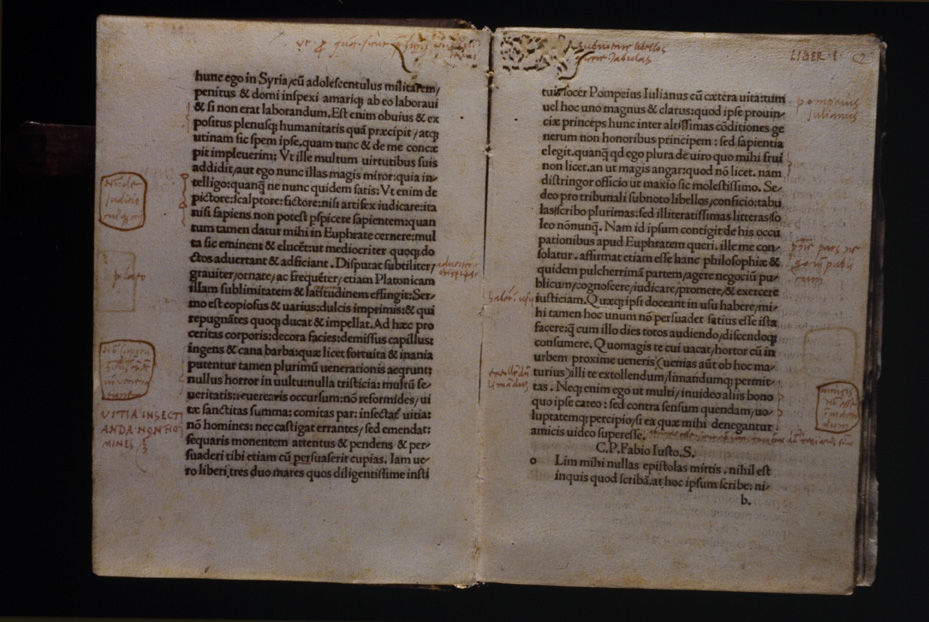 hunc ego in Syria/cū adolescentulus militarem/
penitus & domi inspexi amariq; ab eo laboraui
& si non erat laborandum. Est enim obuius & ex
positus plenusq; humanitatis quā præcipit/atq;
utinam sic spem ipse, quam tunc & de me concæ
pit impleuerim: Vt ille multum uirtutibus suis
addidit/aut ego nunc illas magis miror: quia in-
telligo: quanq̄ ne nunc quidem satis: Vt enim de
pictore: scalptore: fictore: nisi artifex iudicare: ita
nisi sapiens non potest pspicere sapientem: quan
tum tamen datur mihi in Euphrate cernere: mul
ta sic eminent & elucēt: ut mediocriter quoq; do
ctos aduertant & adficiant. Disputat subtiliter/
grauiter/ornate/ac frequēter/etiam Platonicam
illam sublimitatem & latitudinem effingit: Ser-
mo est copiosus & uarius: dulcis imprimis: & qui
repugnātes quoq; ducat & impellat. Ad hæc pro
ceritas corporis: decora facies: demissus capillus:
ingens & cana barba: quæ licet fortuita & inania
putentur tamen plurimū uenerationis acquirunt:
nullus horror in uultu: nulla tristicia: multū se-
ueritatis: reuerearis occursum: nō reformides/ui
tæ sanctitas summa: comitas par: insectat̄ uitia:
nō homines: nec castigat errantes/sed emendat:
sequaris monentem attentus & pendens & per-
suaderi tibi etiam cū persuaserit cupias. Iam ue-
ro liberi tres duo mares quos diligentissime insti
plato
VITIA INSECT
ANDA NON HO
MINES
LIBER I
tuit. socer Pompeius Iulianus cū cætera uita: tum
uel hoc uno magnus & clarus: quod ipse prouin-
ciæ princeps hunc inter altissimas cōditiones ge
nerum non honoribus principem: sed sapientia
elegit. quanq̄ qd ego plura de uiro quo mihi frui
non licet. an ut magis angar: quod nō licet. nam
distringor officio ut maxio sic molestissimo. Se-
deo pro tribunali subnoto libellos/conficio: tabu
las/scribo plurimas: sed illiteratissimas litteras/so
leo nōnunq̄. Nam id ipsum contigit de his occu
pationibus apud Euphratem queri. ille me con-
solatur. affirmat etiam esse hanc philosophiæ &
quidem pulcherrimā partem/agere negociū pu-
blicum/cognoscere/iudicare/promere/& exercere
iusticiam. Quæq; ipsi doceant in usu habere/mi-
hi tamen hoc unum nō persuadet satius esse ista
facere: q̄ cum illo dies totos audiendo/discendoq;
consumere. Quo magis te cui uacat/hortor cū in
urbem proxime ueneris (uenias aūt ob hoc ma-
turius) illi te extollendum/limandumq; permit-
tas. Neq; enim ego ut multi/inuideo aliis bono
quo ipse careo: sed contra sensum quendam/uo-
luptatemq; percipio/si ea quæ mihi denegantur
amicis uideo superesse.
C. P. Fabio Iusto. S.
o Lim mihi nullas epistolas mittis. nihil est
inquis quod scribā. at hoc ipsum scribe: ni-
b.
pompeius
Iulianus